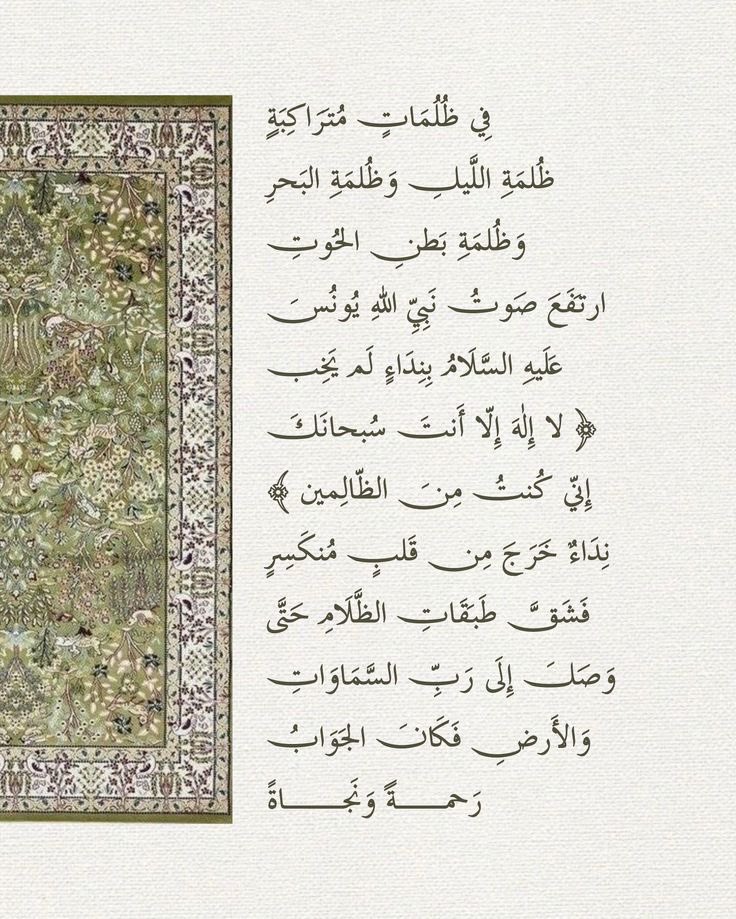 فِي ظُلُمَاتٍ مُتَرَاكِبَةٍ
ظُلمَةِ اللَّيلِ وَظُلمَةِ البَحرِ
وَظُلمَةِ بَطنِ الحُوتِ
ارتَفَعَ صَوتُ نَبِيِّ اللهِ يُونُسَ
عَلَيهِ السَّلَامُ بِنِدَاءٍ لَم يَخِب
﴿ لا إِلٰهَ إِلّا أَنتَ سُبحانَكَ
إِنّي كُنتُ مِنَ الظّالِمين ﴾
نِدَاءٌ خَرَجَ مِن قَلبٍ مُنكَسِرٍ
فَشَقَّ طَبَقَاتِ الظَّلَامِ حَتَّى
وَصَلَ إِلَى رَبِّ السَّمَاوَاتِ
وَالأَرضِ فَكَانَ الجَوَابُ
رَحمــــةً وَنَجــــاةً